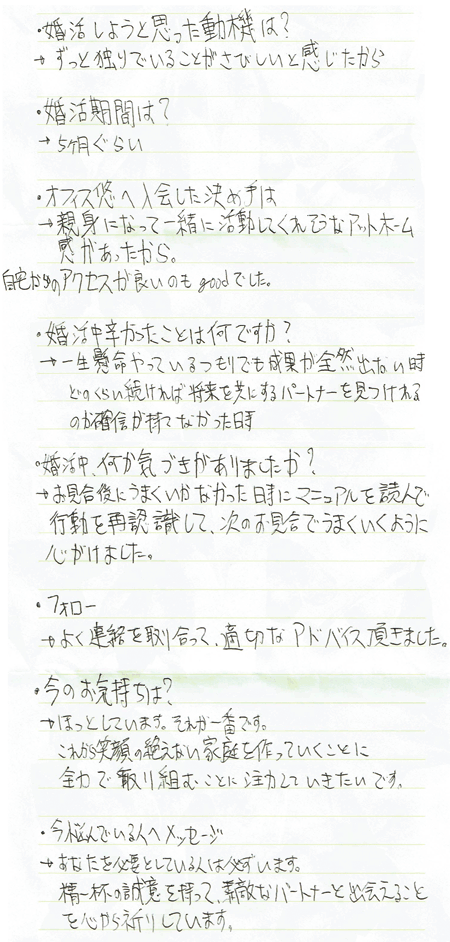 ・婚活しようと思った動機は？
→ずっと独りでいることがさびしいと感じたから
・婚活期間は？
→5ヶ月ぐらい
・オフィス悠へ入会した決め手は
→親身になって一緒に活動してくれそうなアットホーム
感があったから。
自宅からのアクセスが良いのもgoodでした。
・婚活中辛かったことは何ですか？
→一生懸命やっているつもりでも成果が全然出ない時
どのくらい続ければ将来を共にするパートナーを見つけれる
のか確信が持てなかった時
・婚活中、何か気づきがありましたか？
→お見合後にうまくいかなかった時にマニュアルを読んで
行動を再認識して、次のお見合でうまくいくように
心がけました。
・フォロー
→よく連絡を取り合って、適切なアドバイス頂きました。
・今のお気持ちは？
→ほっとしています。それが一番です。
これから笑顔の絶えない家庭を作っていくことに
全力で取り組むことに注力していきたいです。
・今悩んでいる人へメッセージ
→あなたを必要としている人は必ずいます。
精一杯の誠意を持って、素敵なパートナーと出会えること
を心から祈りしています。